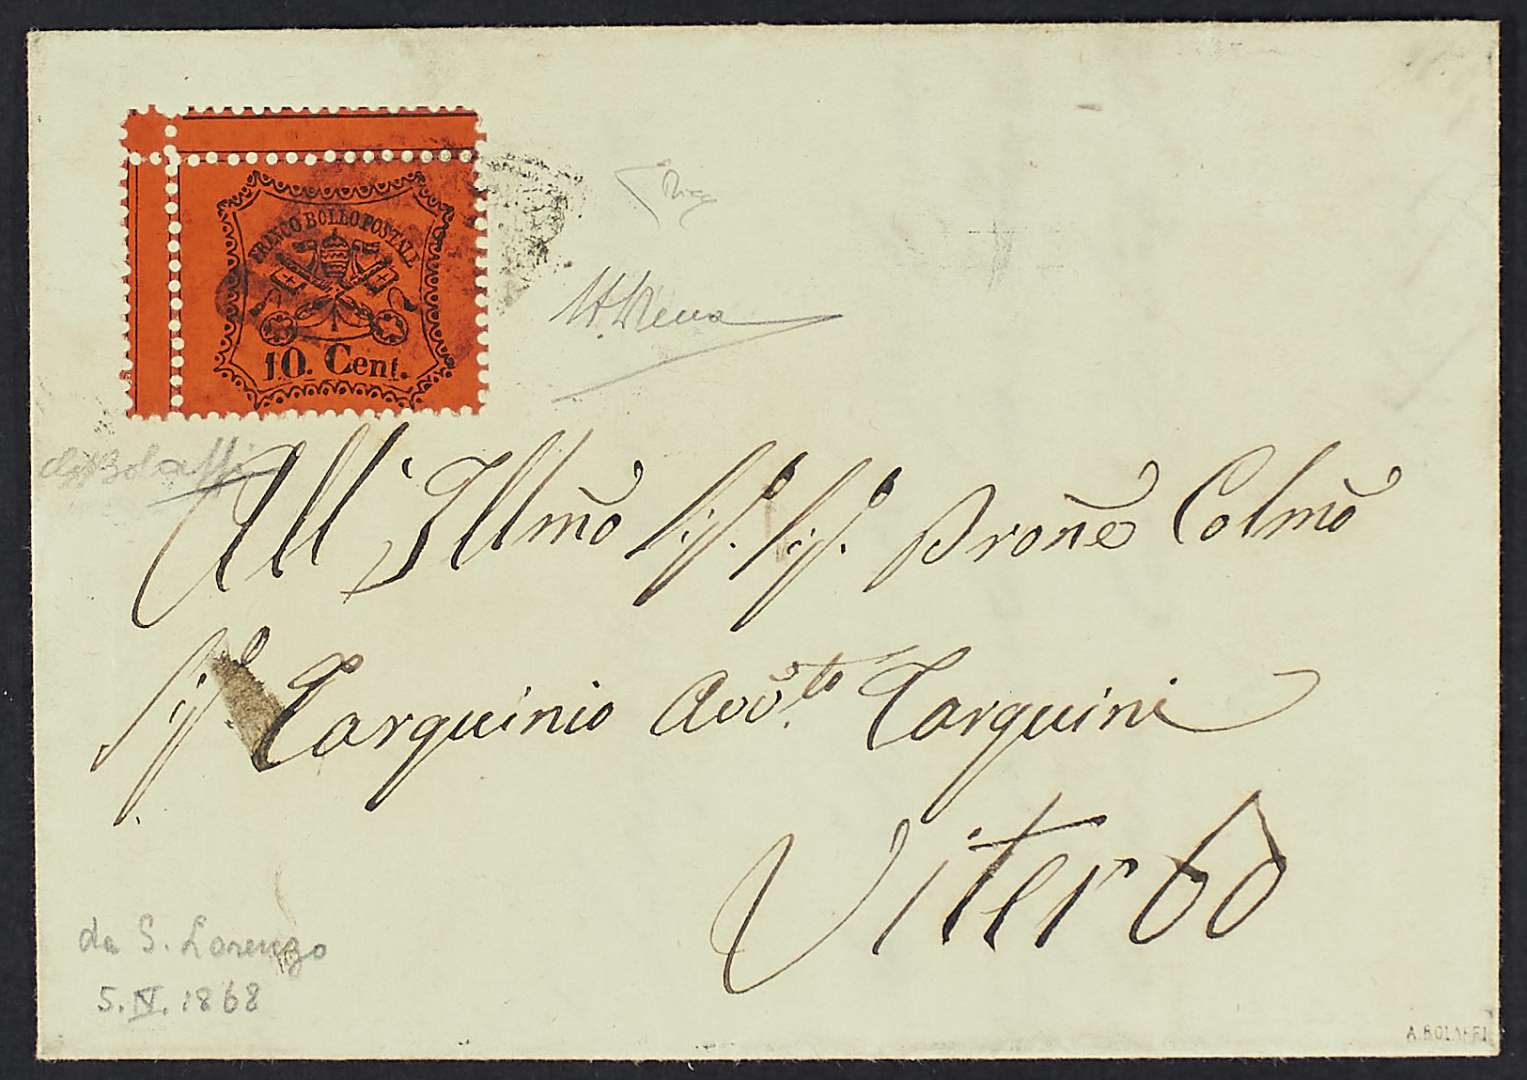 FRANCO BOLLO POSTALE
10. Cent.
A. Diena
Bolaffi
All' Illm̃o Sig.r Sig.r Prõne Colm̃o
Sig.r Tarquinio Avv.to Tarquini
Viterbo
da S. Lorenzo
5.IV.1868
A. BOLAFFI